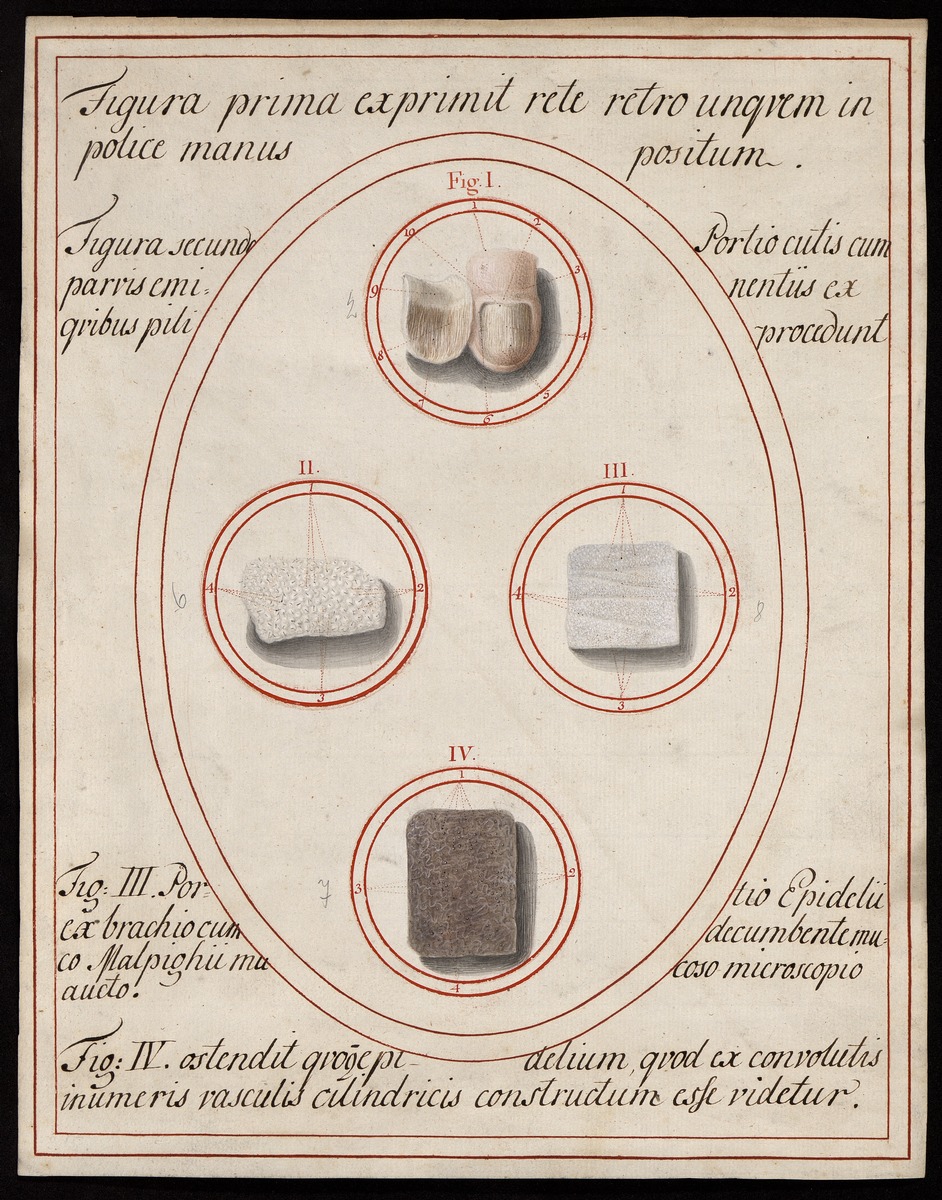 Figura prima exprimit rete retro unqvem in
police manus positum .
Fig. I.
1
2
3
4
5
6
7
8
9
10
Figura secund Portio cutis cum
parvis emi: nentiis ex
qribus pili procedunt
II.
1
2
3
4
III.
1
2
3
4
IV.
1
2
3
4
6
8
7
Fig: III. Por- tio Epidelii
ex brachio cum decumbente mu:
co Malpighii mu coso microscopio
aucto.
Fig: IV. ostendit delium, qvod ex convolutis
inumeris vasculis cilindricis constructum esse videtur.